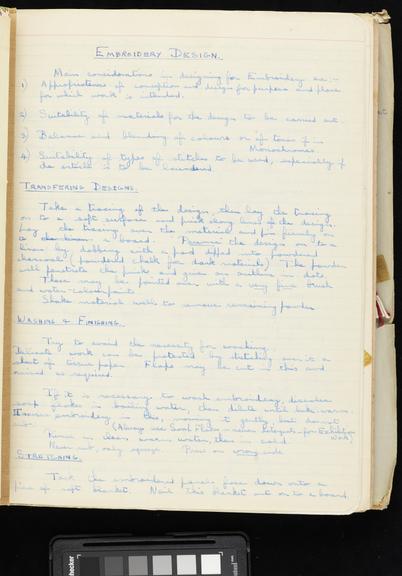 EMBROIDERY DESIGN.
Main considerations in designing for Embroidery are:-
1) Appropriateness of conception and design for purpose and place
for which work is intended.
2) Suitability of materials for the design to be carried out.
3) Balance and blending of colours or of tones if in
Monochromes.
4) Suitability of types of stitches to be used, especially if
the article is to be laundered.
TRANSFERING DESIGNS.
Take a tracing of the design, then lay the tracing
on to a soft surface and prick along lines of the design.
Lay the tracing over the material and pin firmly on
to a board. Pounce the design on to
linen by dabbing with a pad dipped into powdered
charcoal (powdered chalk for dark materials) The powder
will penetrate the pricks and give an outline in dots.
These may be painted over with a very fine brush
and water-colour paint.
Shake material well to remove remaining powder
WASHING & FINISHING.
Try to avoid the necessity for washing.
Delicate work can be protected by stitching over it a
sheet of tissue paper. Flaps may be cut in this and
raised as required.
If it is necessary to wash embroidery, dissolve
soap flakes in boiling water, then dilute until luke warm.
Immerse embroidery in this, moving it gently, but do not
rub. (Always use Soap Flakes never Detergents for Embroidery
Work)
Rinse in clean warm water, then in cold
Never rub, only squeeze. Press on wrong side
STRETCHING.
Tack the embroidered panel face down onto a
piece of soft blanket. Nail this blanket out on to a board,